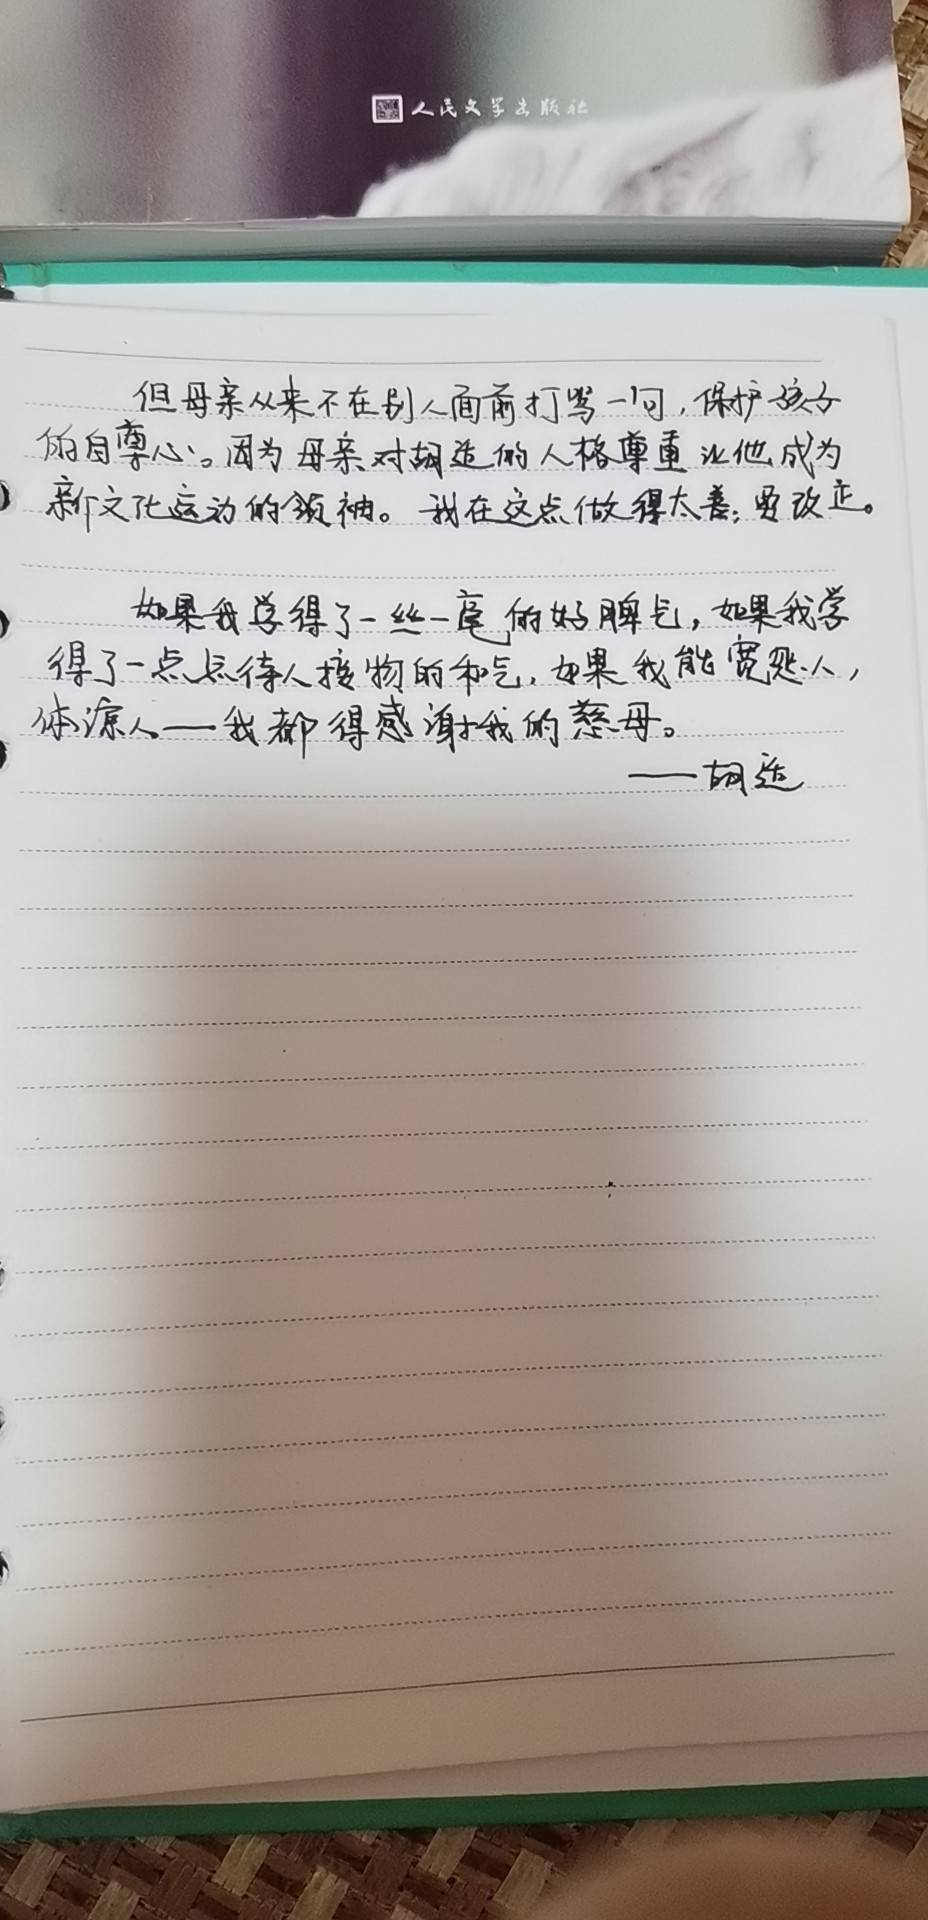 人民文学出版社
但母亲从来不在别人面前打骂一句,保护孩子
的自尊心。因为母亲对胡适的人格尊重让他成为
新文化运动的领袖。我在这点做得太差,要改正。
如果我学得了一丝一毫的好脾气,如果我学
得了一点点待人接物的和气,如果我能宽恕人,
体谅人——我都得感谢我的慈母。
——胡适